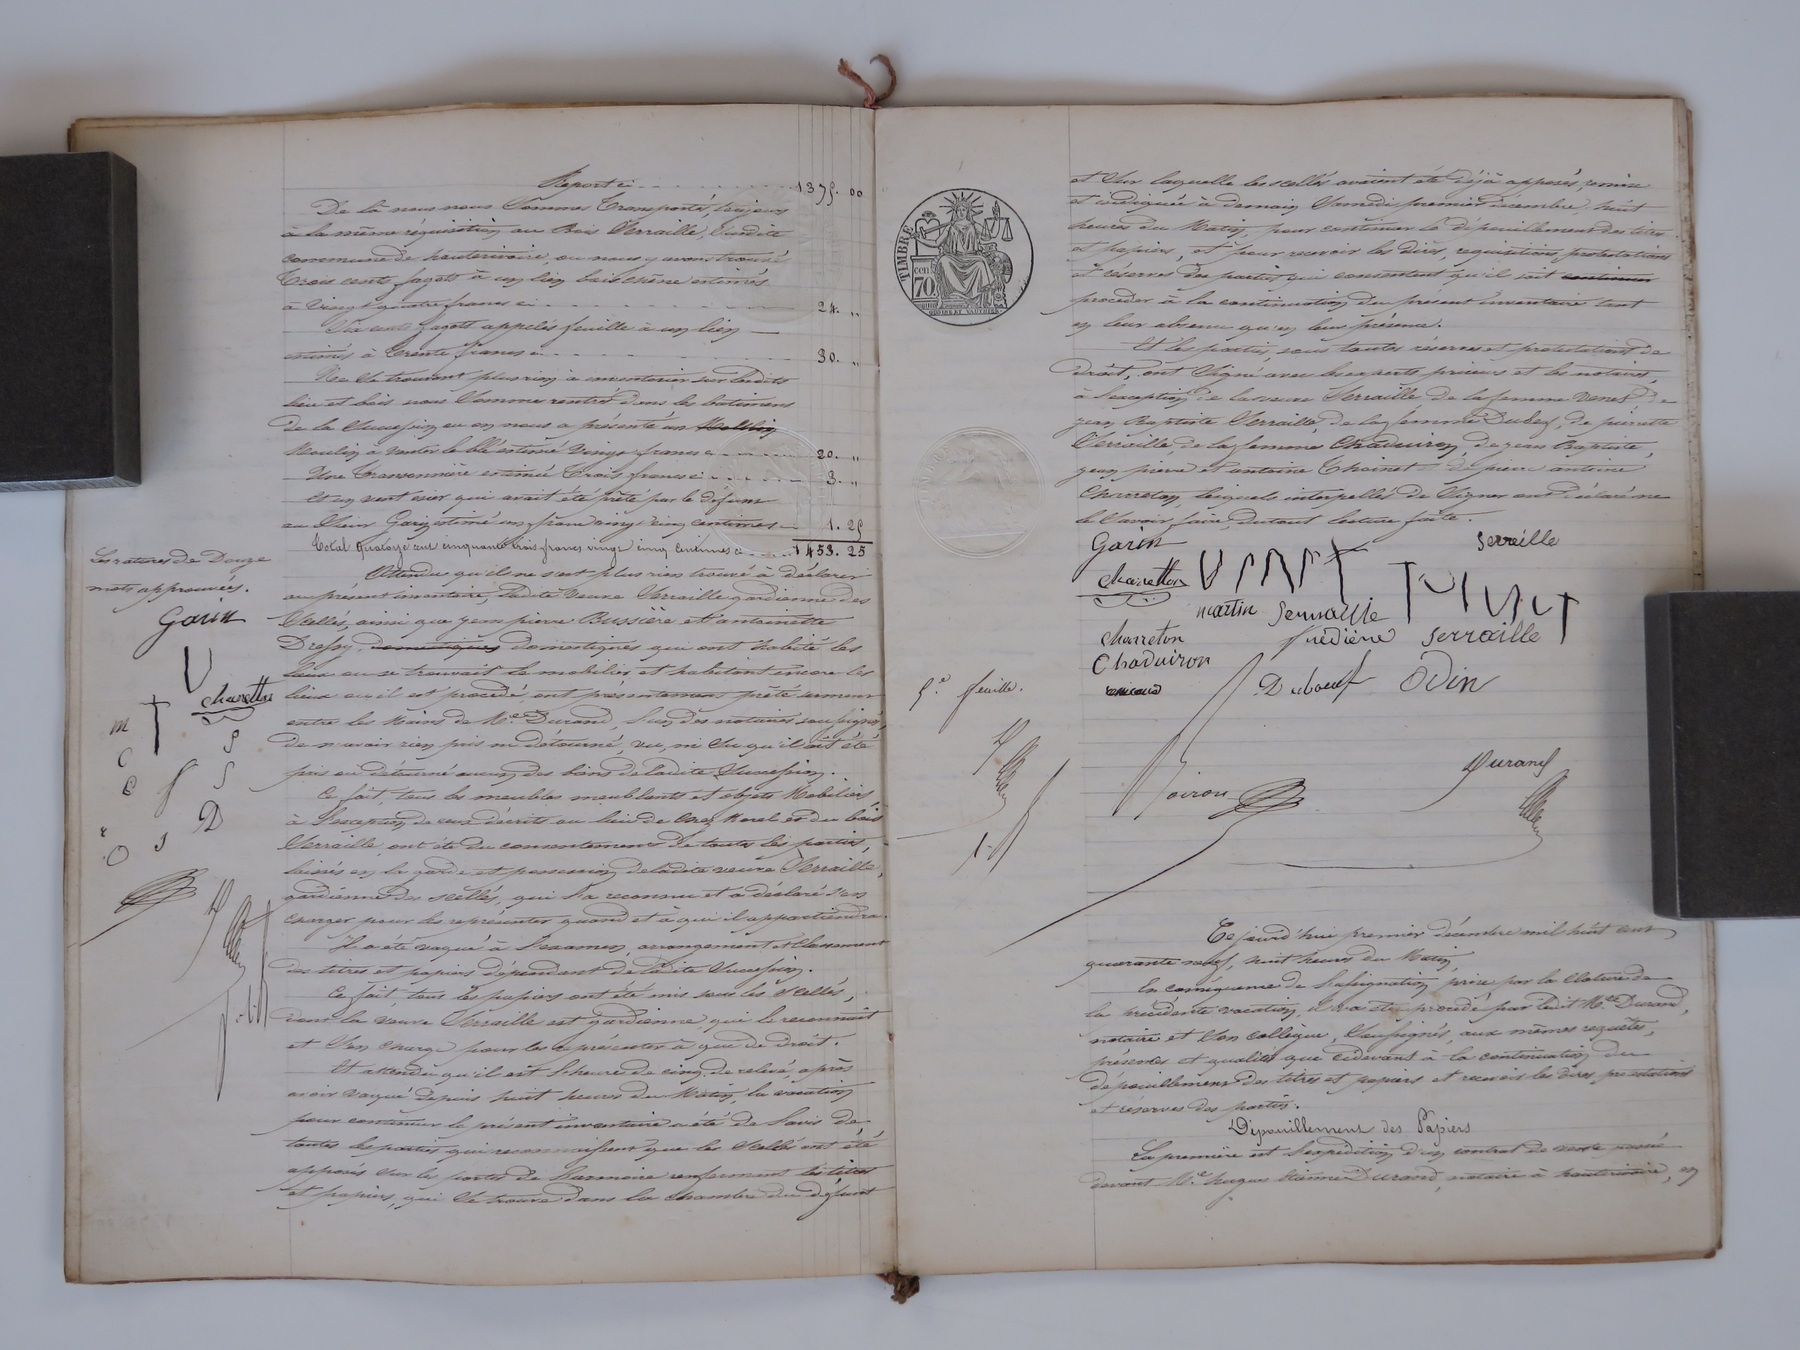 Report ci - - - 1375. 00
De là nous nous sommes transporté, toujours
à la même réquisition au Bois Serraille, susdite
commune de hauterivoire, ou nous y avons trouvé
Trois cents fagots à un lien bois chêne estimés
à vingt quatre francs ci - - - 24. "
Six cents fagots appelés feuille à un lien
estimés à trente francs ci - - - 30. "
Ne se trouvant plus rien à inventorier sur lesdits
lieu et bois nous sommes rentrés dans les batimens
de la succession ou on nous a présenté un
Moulin à vanter le blé estimé vingt francs ci - - - 20. "
Une Transonnière estimée trois francs ci - - - 3. "
Et un vent osier qui avait été prêté par le défunt
au sieur Garin estimé un franc vingt cinq centimes - 1. 25
Total quatorze cent cinquante trois francs vingt cinq centimes ci - - - 1453. 25
Attendu qu'il ne s'est plus rien trouvé à déclarer
au présent inventaire, ladite veuve Serraille gardienne des
scellés, ainsi que jean pierre Bussière et antoinette
domestiques domestiques qui ont habité les
lieux ou se trouvait le mobilier et habitant encore les
lieux ou il est procédé, ont présentement prêté serment
entre les mains de Me Durand, l'un des notaires soussignés,
de n'avoir rien pris ni détourné, vu, ni su qu'il ait été
pris ou détourné aucun des biens de ladite succession.
Ce fait, tous les meubles meublants et objets mobiliers,
à l'exception de ceux décrits au lieu de chez Morel et du bois
Serraille, ont été du consentement de toutes les parties,
laissés en la garde et possession de ladite veuve Serraille,
gardienne des scellés, qui l'a reconnu et a déclaré s'en
charger pour les représenter quand et à qui il appartiendra.
Il a été vaqué à l'examen, arrangement et classement
des titres et papiers dépendant de ladite succession.
Ce fait, tous les papiers ont été mis sous les scellés,
dont la veuve Serraille est gardienne qui le reconnait
et s'en charge pour les représenter à qui de droit.
Et attendu qu'il est l'heure de cinq de relevé, après
avoir vaqué depuis huit heures du Matin, la vacation
pour continuer le présent inventaire a été de l'avis de
toutes les parties qui reconnaissent que les scellés ont été
apposés sur les portes de l'armoire renfermant les titres
et papiers, qui se trouve dans la chambre du défunt
Les ratures de Douze
mots approuvées.
Garin
Charetton
m
C
S
C
S
D
O
S
TIMBRE
70 cen
et sur laquelle les scellés avaient été déjà apposés, remise
et indiquée à demain samedi premier décembre, huit
heures du Matin, pour continuer le dépouillement des titres
et papiers, et pour recevoir les dires, réquisitions, protestations
et réserves des parties qui consentent qu'il soit continuer
procéder à la continuation du présent inventaire tant
en leur absence qu'en leur présence.
Et les parties, sous toutes réserves et protestations de
droit, ont signé avec les experts priseurs et les notaires,
à l'exception de la veuve Serraille de la femme Venet, de
jean Baptiste Serraille, de la femme Dubeuf, de pierrette
Serraille, de la femme Chaduiron, de jean Baptiste,
jean pierre et antoine Thoinet et de pierre antoine
Charreton, lesquels interpellés de signer ont déclaré ne
le savoir faire, du tout lecture faite.
Garin
Serraille
Charetton
martin Serraille
Charreton
Serraille
Chaduiron
Duboeuf Odin
5.e feuille.
Durand
Ce jourd'hui premier décembre mil huit cent
quarante neuf, huit heures du Matin
En conséquence de l'assignation prise par la cloture de
la précédente vacation, il va être procédé par ledit Me Durand,
notaire et son collègue, soussignés, aux mêmes requêtes,
présences et qualités que cidevant à la continuation du
dépouillement des titres et papiers et recevoir les dires, protestations
et réserves des parties.
Dépouillement des Papiers
La première est l'expédition d'un contrat de vente passé
devant Me hugues étienne Durand, notaire à hauterivoire, en